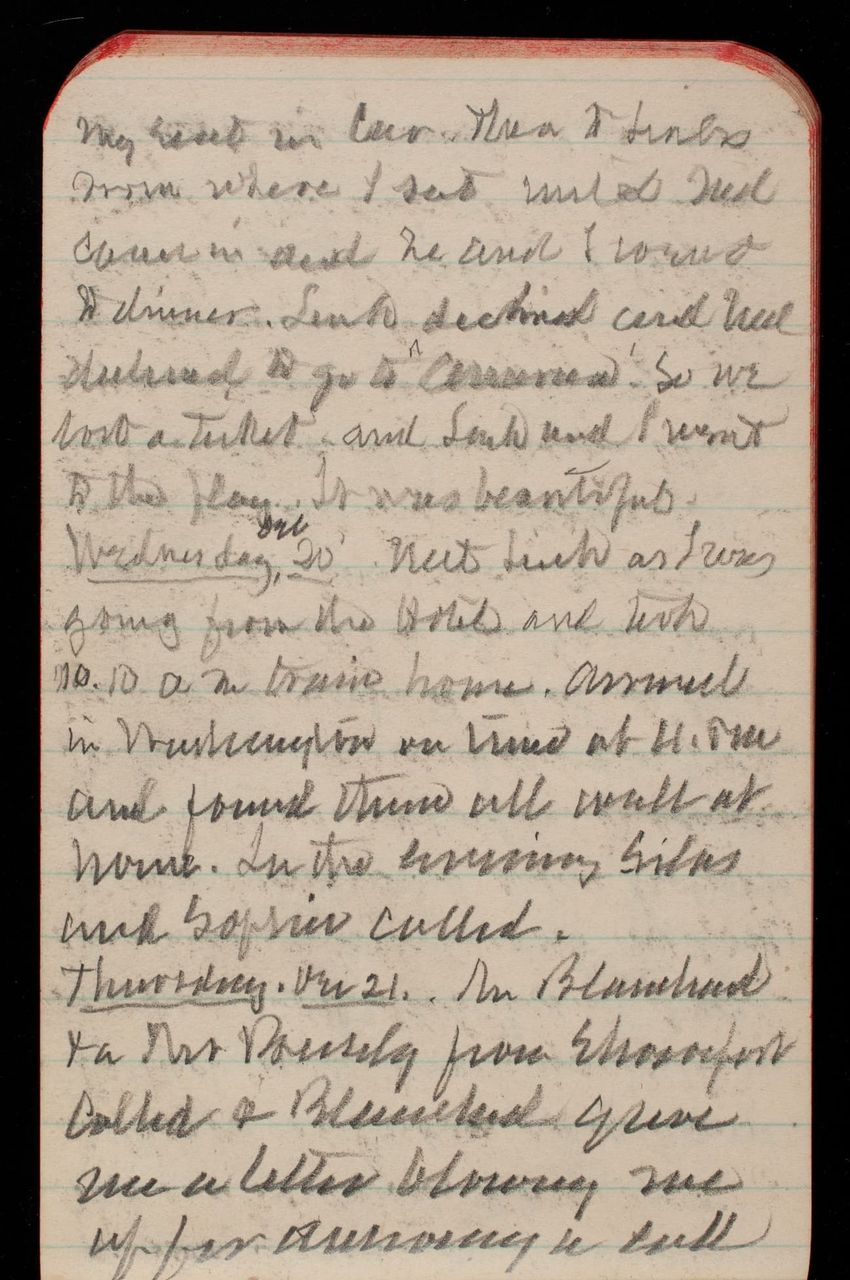 my seat in Car. Then to
room where I sat until Ned
came in and he and I went
to dinner. declined and Ned
to go to So we
lost a ticket and and I went
to the play. It was beautiful.
Wednesday, Dec 20 Met as I was
going from the Hotel and took
10. a m train home. Arrived
in Washington on time at 4. P m
and found them all well at
home. In the evening Silas
and Sophie called.
Thursday. Dec 21. Mr Blanchard
& a Mr from Shreveport
Called & Blanchard gave
me a letter blowing me
up for a call